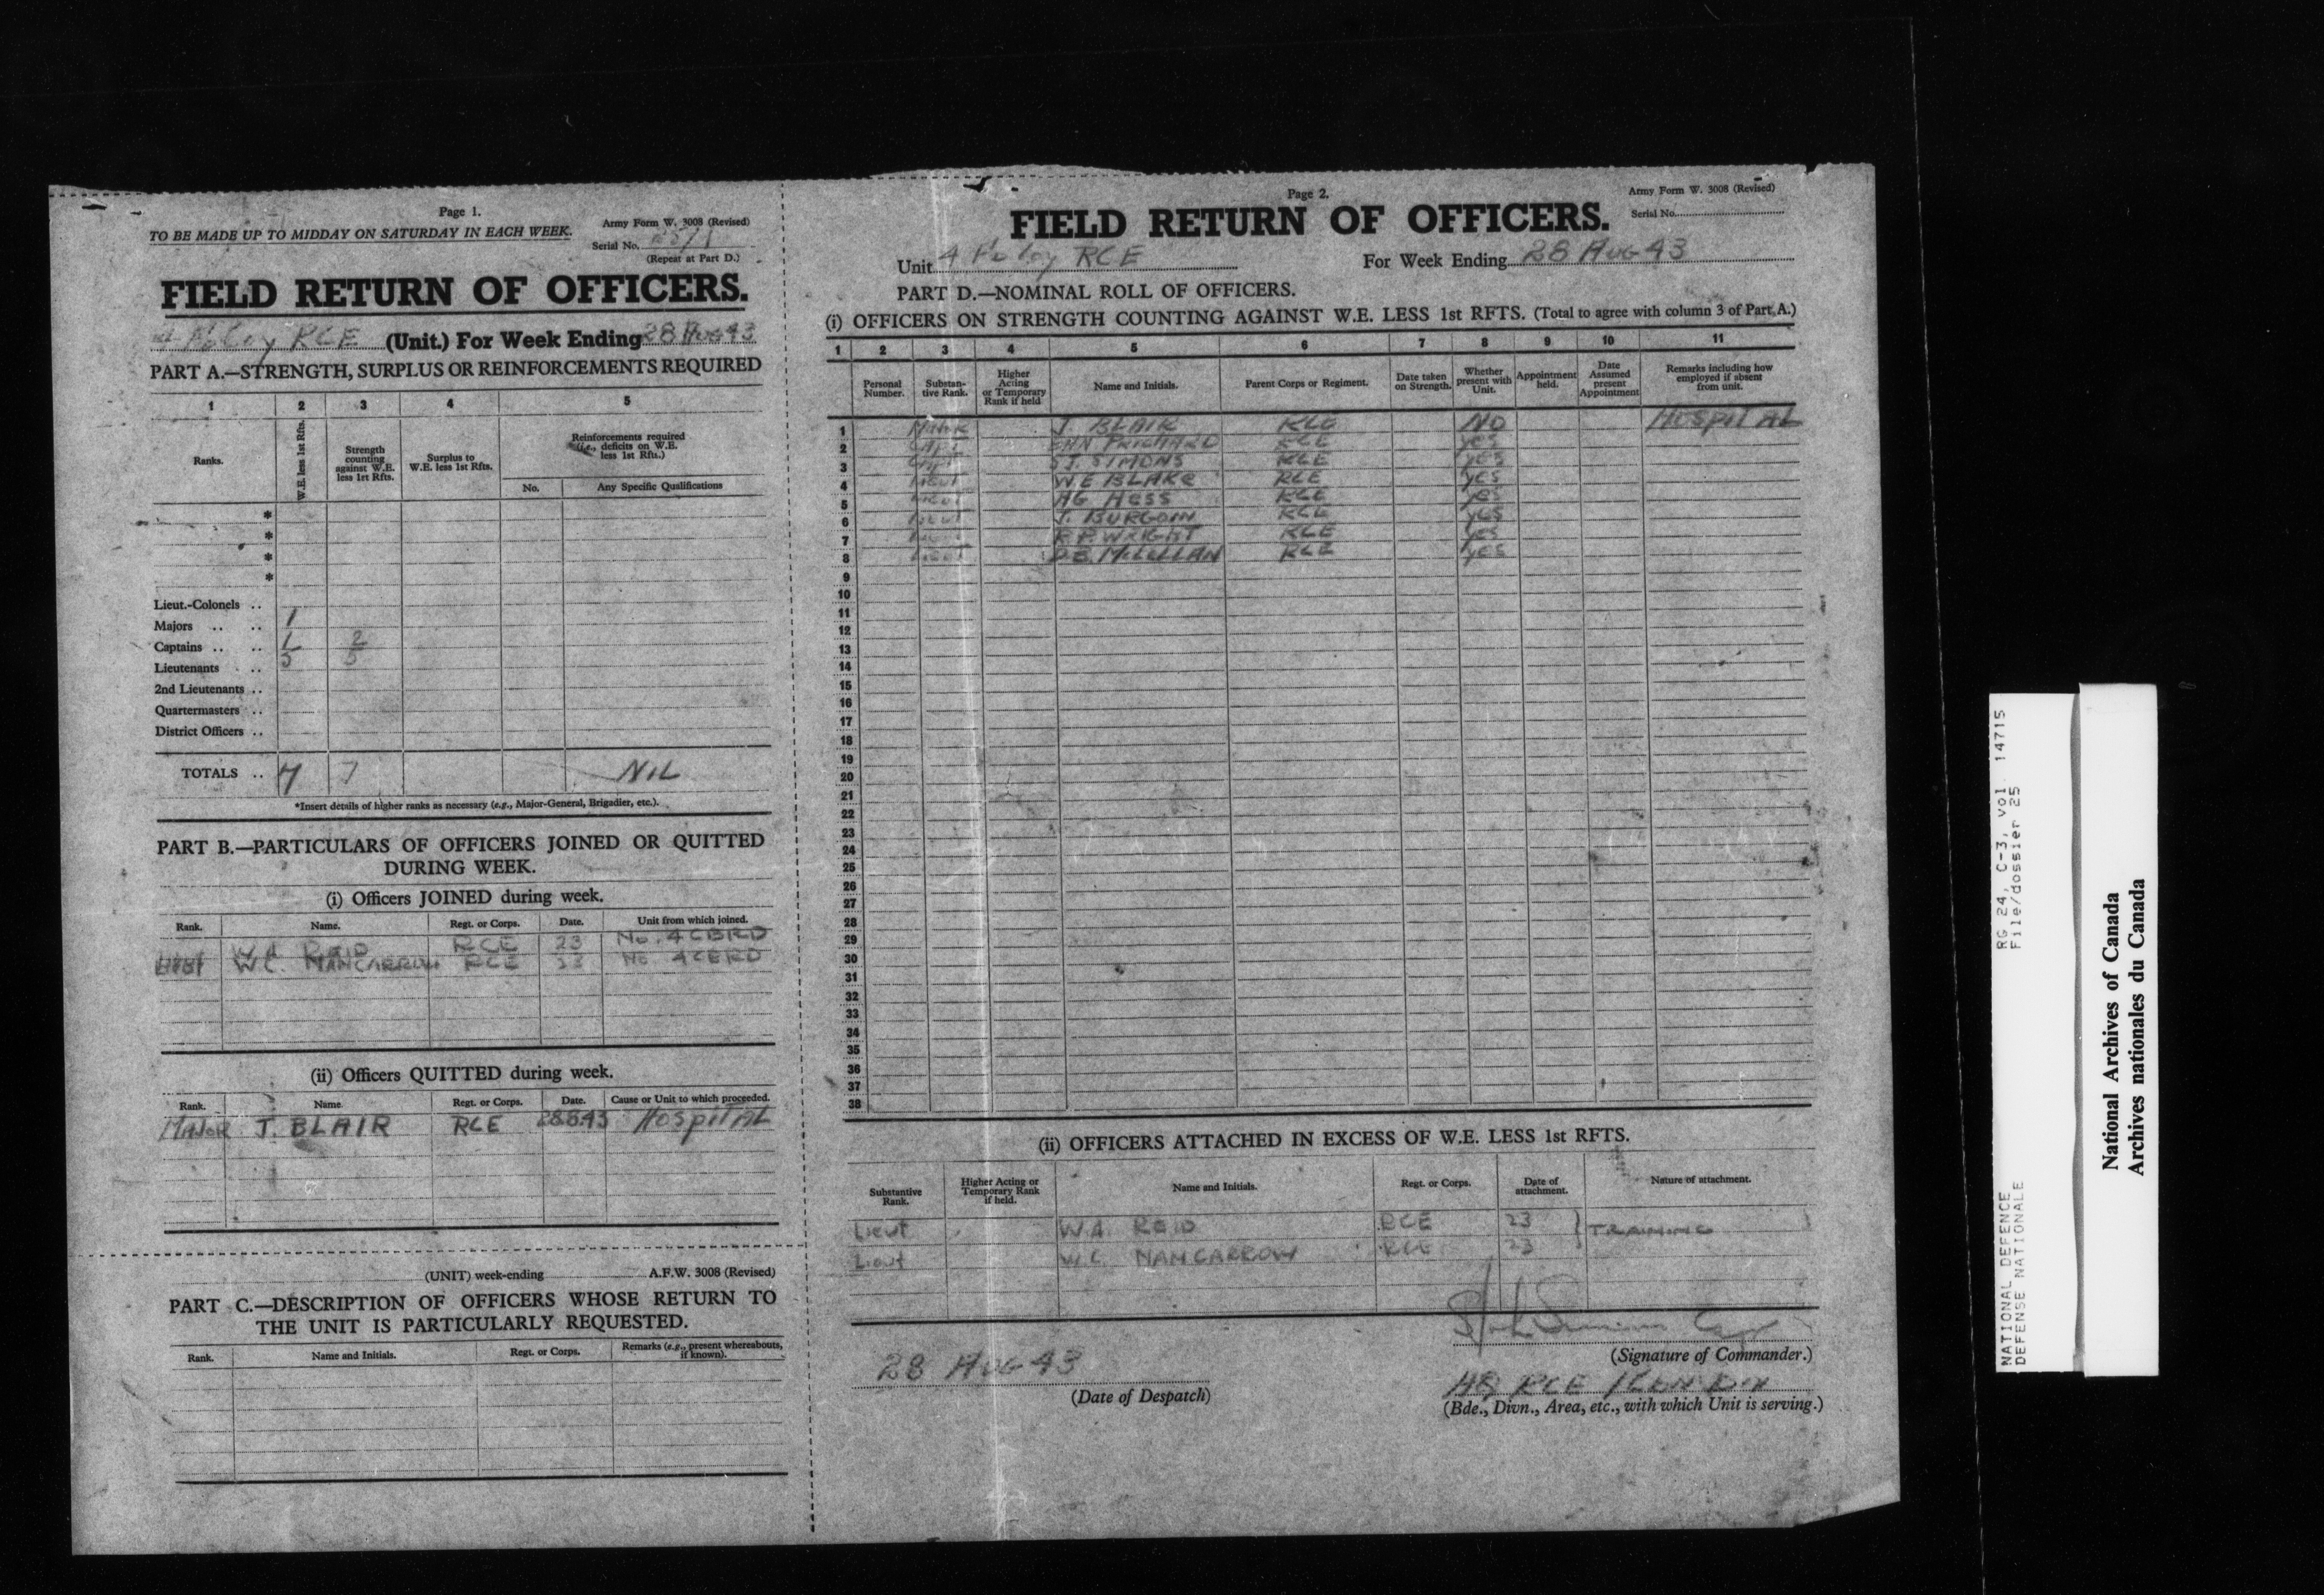 Page 1.
TO BE MADE UP TO MIDDAY ON SATURDAY IN EACH WEEK.
Army Form W. 3008 (Revised)
Serial No.
(Repeat at Part D.)
FIELD RETURN OF OFFICERS.
4 Fd Coy RCE (Unit.) For Week Ending 28 Aug 43
PART A.—STRENGTH, SURPLUS OR REINFORCEMENTS REQUIRED
1 2 3 4 5
Ranks.
W.E. less 1st Rfts.
Strength counting against W.E. less 1st Rfts.
Surplus to W.E. less 1st Rfts.
Reinforcements required
deficits on W.E.
less 1st Rfts.)
No. Any Specific Qualifications
*
*
*
*
Lieut.-Colonels ..
Majors .. .. 1
Captains .. .. 1 2
Lieutenants .. 5 5
2nd Lieutenants ..
Quartermasters ..
District Officers ..
TOTALS .. 7 7 NIL
*Insert details of higher ranks as necessary (e.g., Major-General, Brigadier, etc.).
PART B.—PARTICULARS OF OFFICERS JOINED OR QUITTED
DURING WEEK.
(i) Officers JOINED during week.
Rank. Name. Regt. or Corps. Date. Unit from which joined.
W.A. REID RCE 23 No. 4 CERD
W.C. NANCARROW RCE 23 No. 4 CERD
(ii) Officers QUITTED during week.
Rank. Name Regt. or Corps. Date. Cause or Unit to which proceeded.
MAJOR J. BLAIR RCE 28.8.43 HOSPITAL
(UNIT) week-ending A.F.W. 3008 (Revised)
PART C.—DESCRIPTION OF OFFICERS WHOSE RETURN TO
THE UNIT IS PARTICULARLY REQUESTED.
Rank. Name and Initials. Regt. or Corps. Remarks (e.g., present whereabouts, if known).
Page 2.
Army Form W. 3008 (Revised)
Serial No.
FIELD RETURN OF OFFICERS.
Unit 4 Fd Coy RCE For Week Ending 28 Aug 43
PART D.—NOMINAL ROLL OF OFFICERS.
(i) OFFICERS ON STRENGTH COUNTING AGAINST W.E. LESS 1st RFTS. (Total to agree with column 3 of Part A.)
1 2 3 4 5 6 7 8 9 10 11
Personal Number.
Substantive Rank.
Higher Acting or Temporary Rank if held
Name and Initials.
Parent Corps or Regiment.
Date taken on Strength.
Whether present with Unit.
Appointment held.
Date Assumed present Appointment
Remarks including how employed if absent from unit.
1 MAJOR J. BLAIR RCE NO HOSPITAL
2 CAPT PRICHARD RCE yes
3 CAPT S.J. SIMONS RCE yes
4 Lieut W.E BLAKE RCE yes
5 Lieut HG HESS RCE yes
6 Lieut J. BURGOIN RCE yes
7 Lieut R.P. WRIGHT RCE yes
8 Lieut D.E. McLELLAN RCE yes
9
10
11
12
13
14
15
16
17
18
19
20
21
22
23
24
25
26
27
28
29
30
31
32
33
34
35
36
37
38
(ii) OFFICERS ATTACHED IN EXCESS OF W.E. LESS 1st RFTS.
Substantive Rank.
Higher Acting or Temporary Rank if held.
Name and Initials.
Regt. or Corps.
Date of attachment.
Nature of attachment.
Lieut W.A. REID RCE 23 } TRAINING
Lieut W.C. NANCARROW RCE 23
Capt
(Signature of Commander.)
28 AUG 43
(Date of Despatch)
HQ RCE 1 CDN DIV
(Bde., Divn., Area, etc., with which Unit is serving.)
NATIONAL DEFENCE RG 24, C-3, vol. 14715
DEFENSE NATIONALE File/dossier 25
National Archives of Canada
Archives nationales du Canada